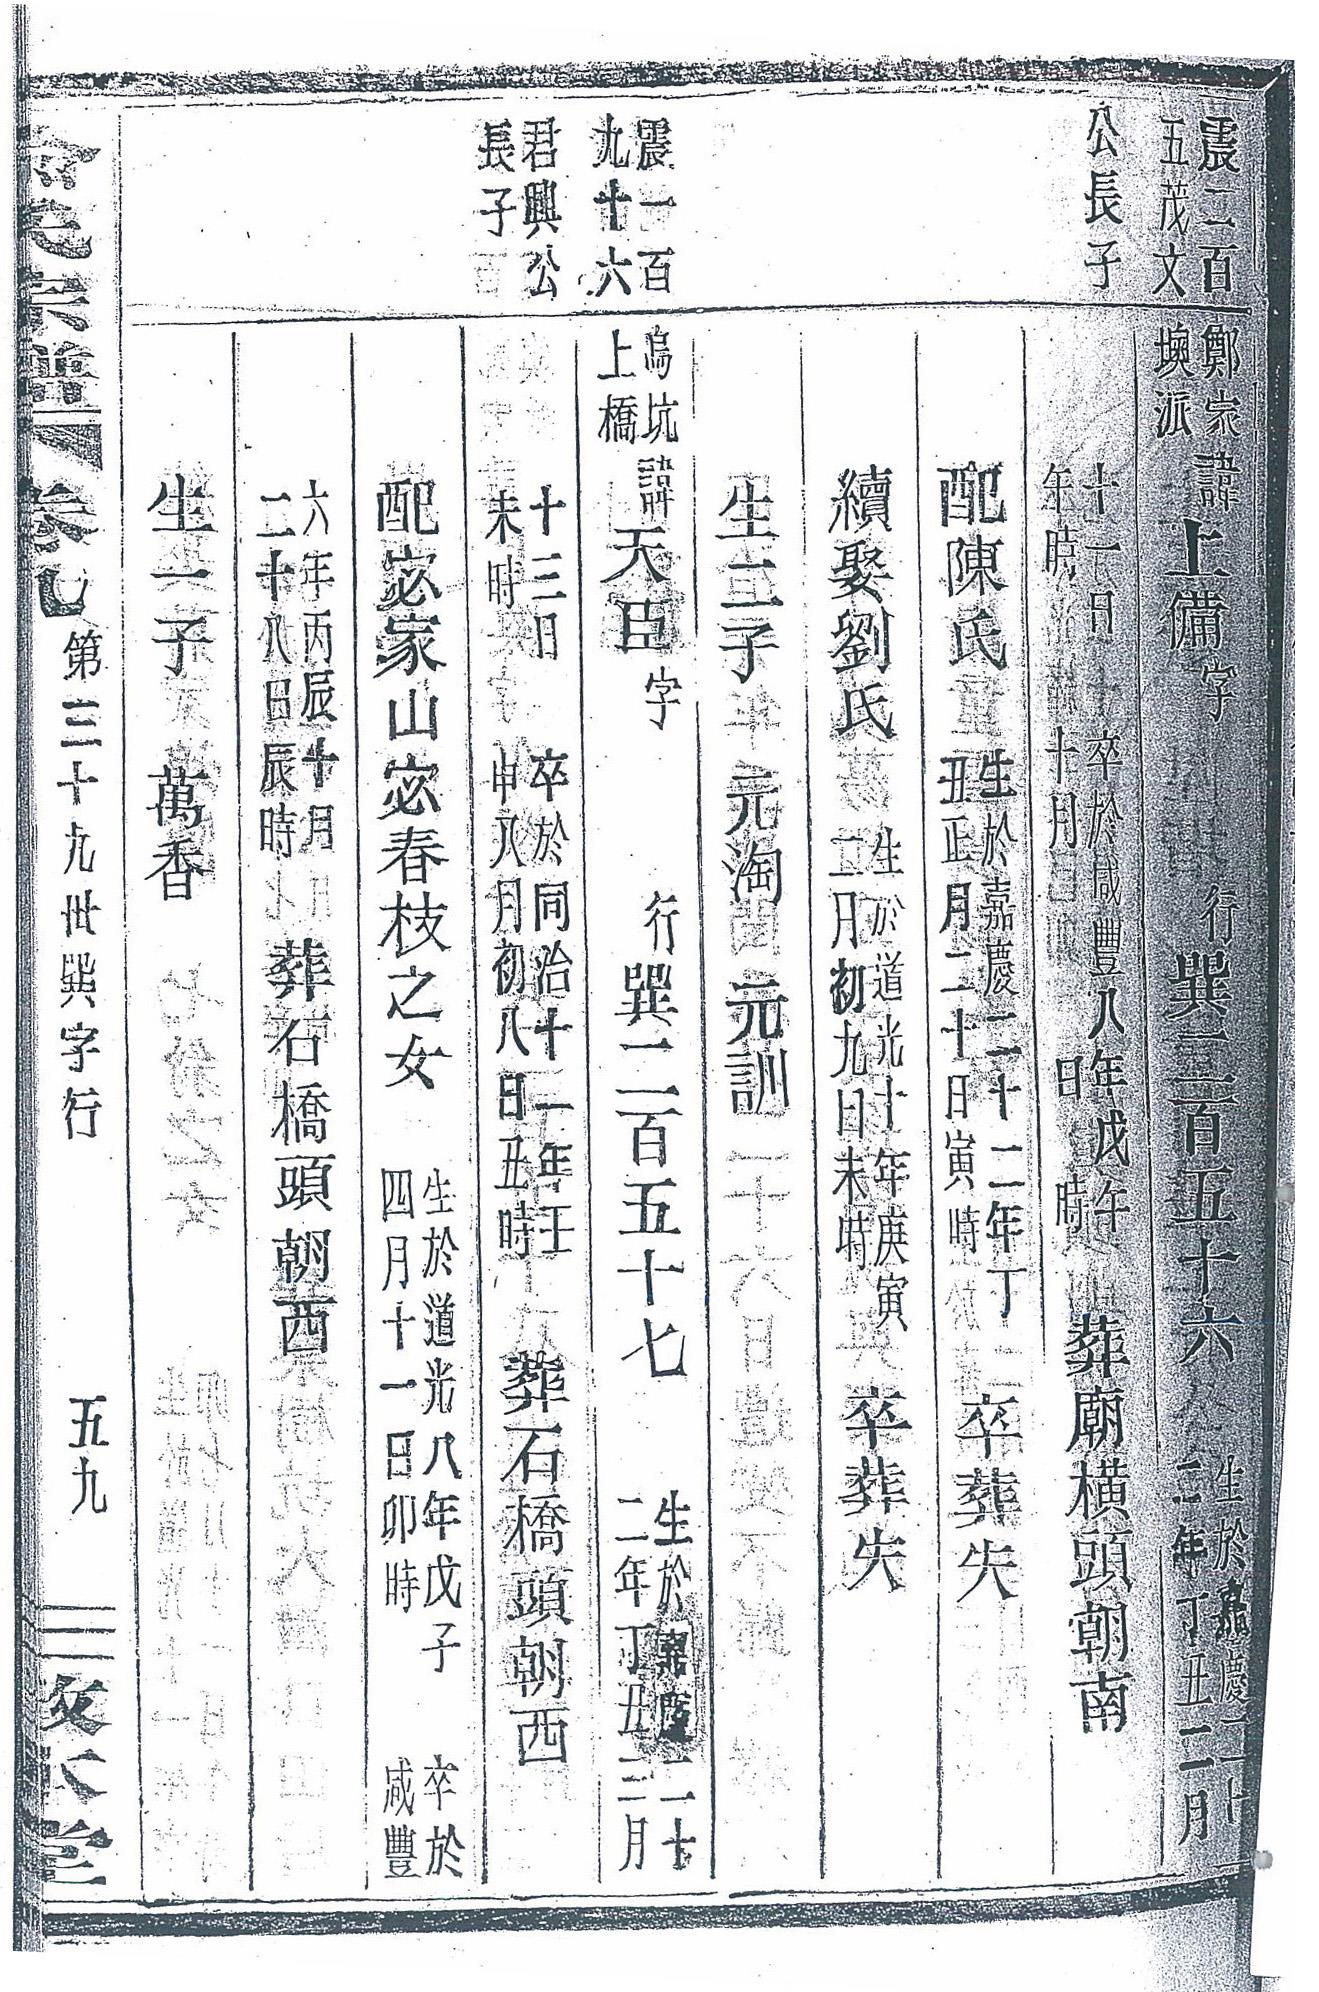 震二百
五茂文
公長子
鄭家
墺派
諱上備字 行巽二百五十六
生於嘉慶二十
二年丁丑二月
十一日
年時
卒於咸豐八年戊午
十月 日 時
葬廟橫頭朝南
配陳氏
生於嘉慶二十二年丁
丑正月二十日寅時
卒葬失
續娶劉氏
生於道光十年庚寅
二月初九日未時
卒葬失
生二子 元淘 元訓
震一百
九十六
君興公
長子
塢坑
上橋
諱天臣字 行巽二百五十七
生於嘉慶二十
二年丁丑三月
十三日
未時
卒於同治十一年壬
申八月初八日丑時
葬石橋頭朝西
配宓家山宓春枝之女
生於道光八年戊子
四月十一日卯時
卒於
咸豐
六年丙辰十月
二十八日辰時
葬石橋頭朝西
生一子 萬香
氏宗譜 卷七 第三十九世巽字行 五九 敦本堂